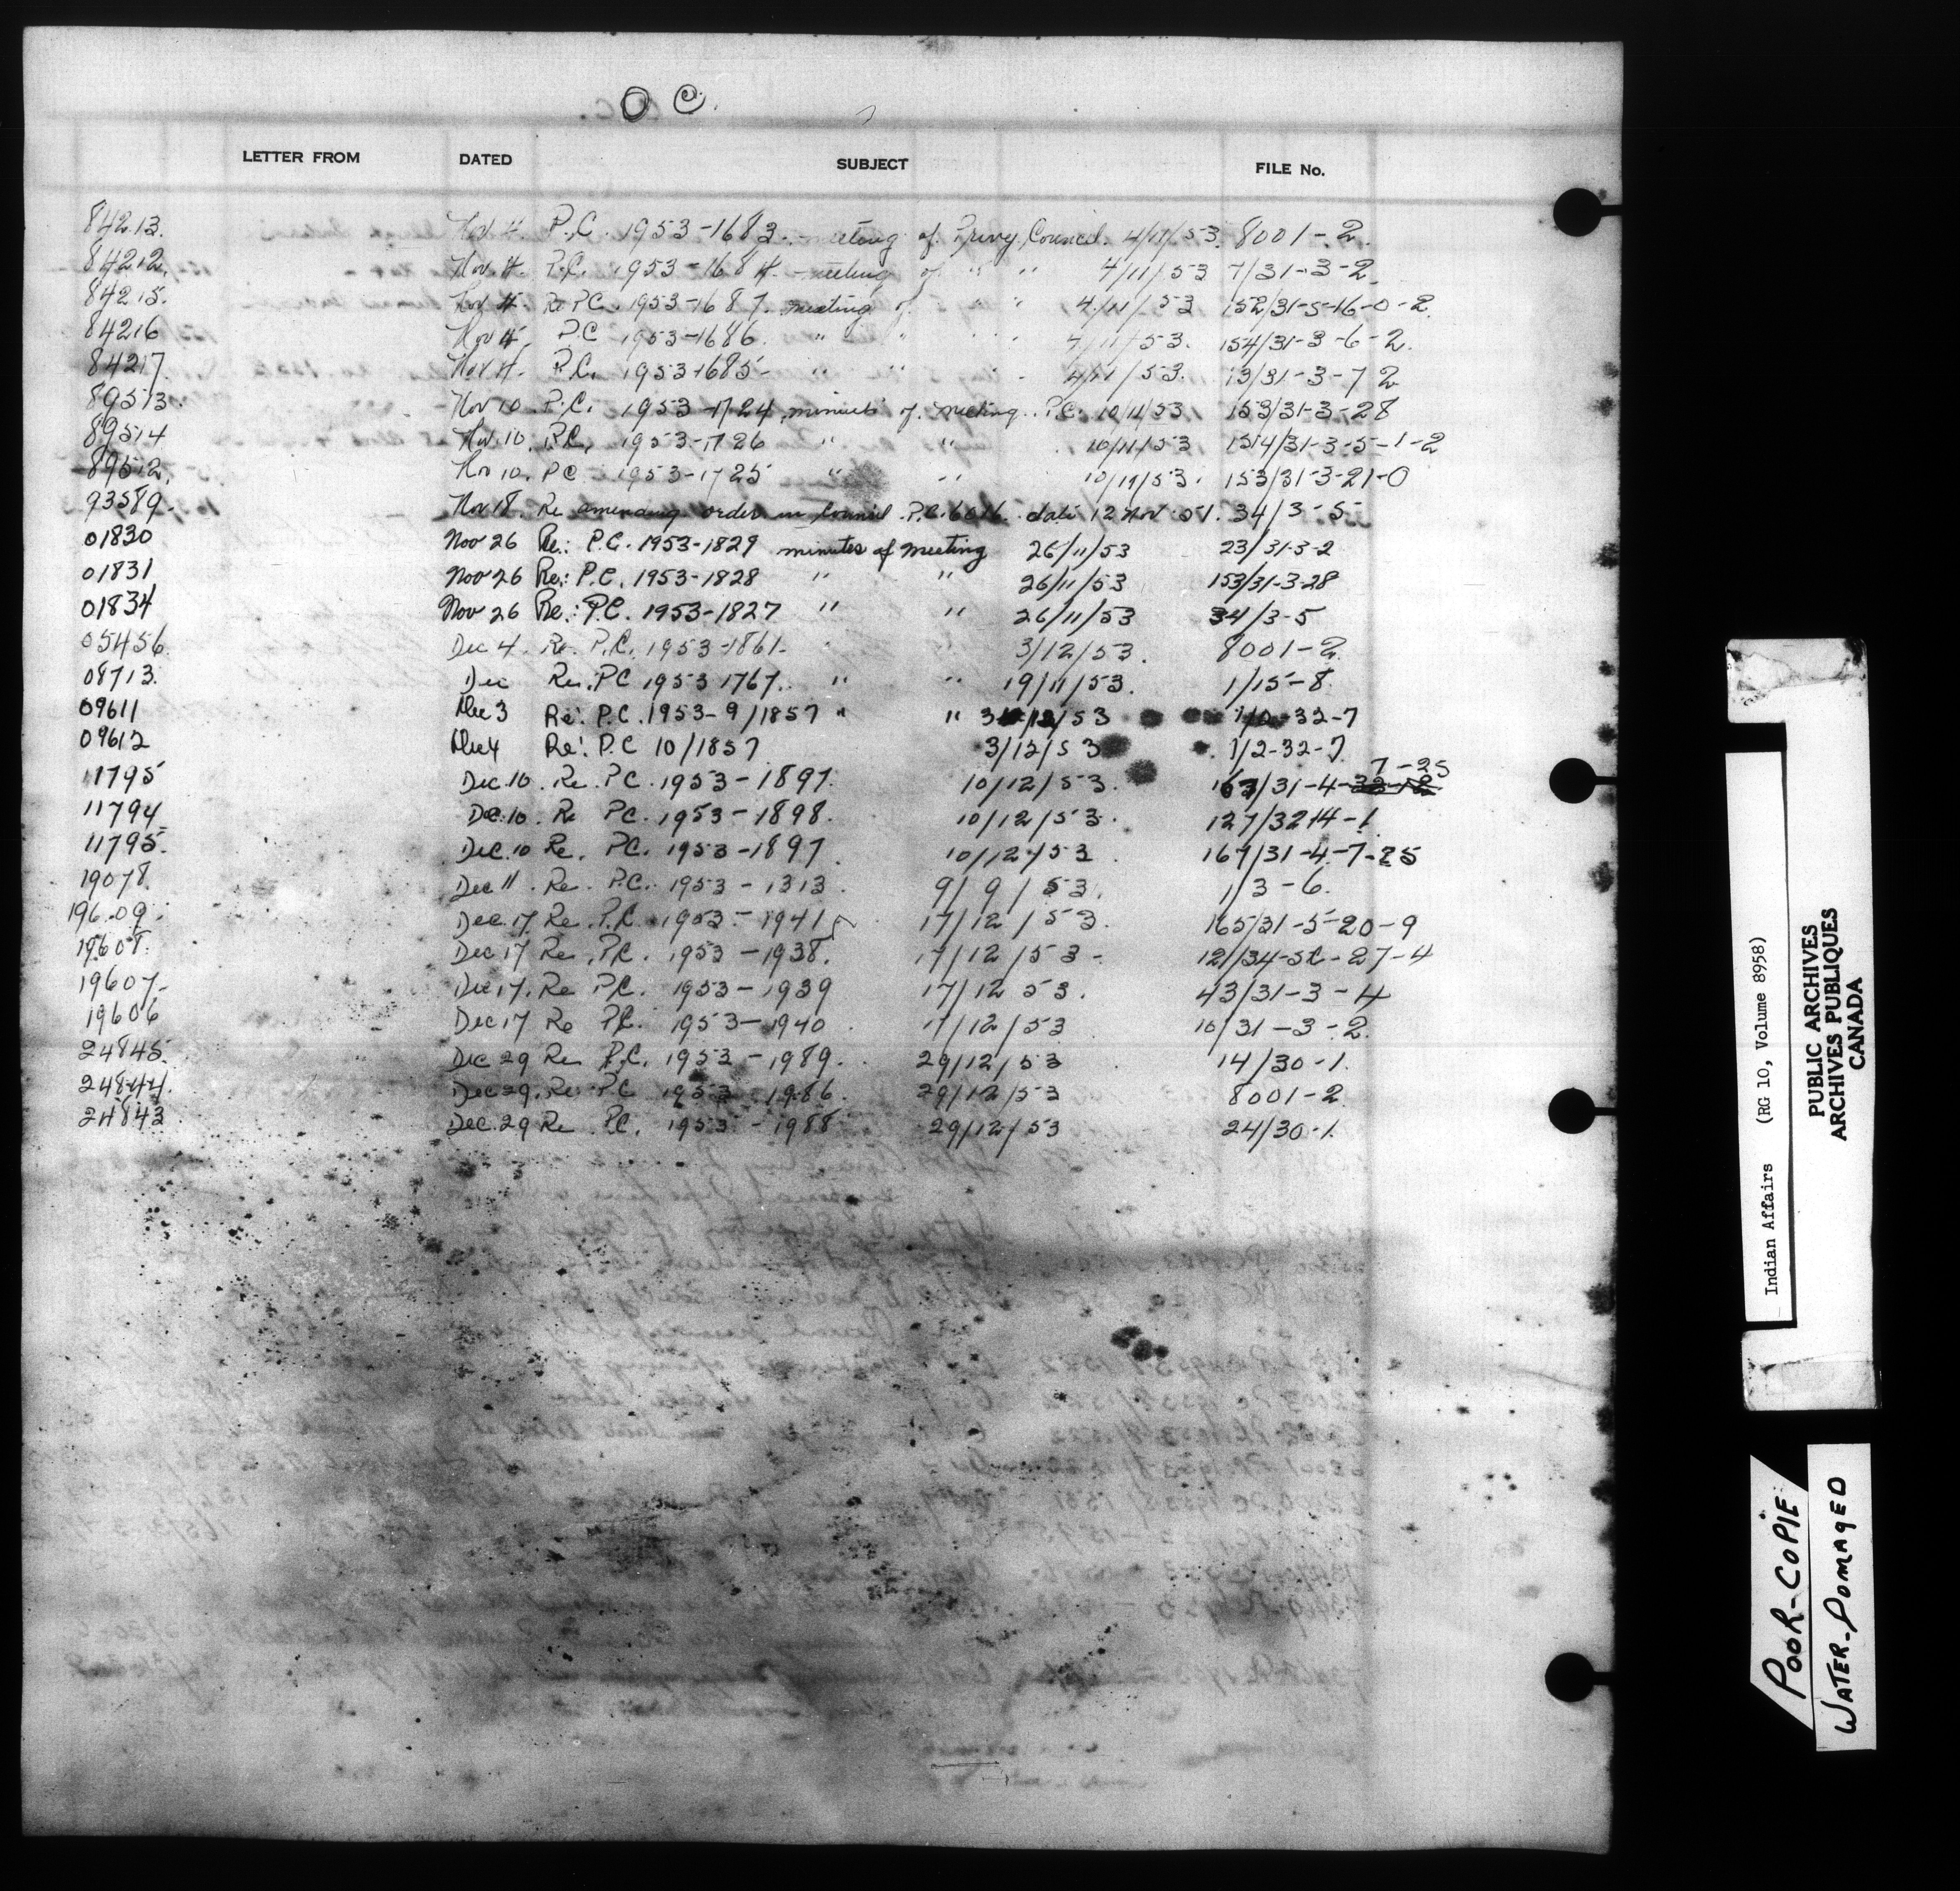 O C.
LETTER FROM DATED SUBJECT FILE No.
84213. Nov. 4. P.C. 1953-1683. meeting of Privy Council. 4/11/53. 8001-2.
84212. Nov. 4. P.C. 1953-1684. meeting of " " 4/11/53 7/31-3-2.
84215. Nov 4. Re PC. 1953-1687. meeting of " " 4/11/53 152/31-5-16-0-2.
84216 Nov 4. P.C 1953-1686. " " 4/11/53. 154/31-3-6-2.
84217. Nov 4. P.C. 1953-1685- " " " 4/11/53. 13/31-3-7 2
89513. Nov 10. P.C. 1953-1724 minutes of meeting. P.C. 10/11/53 153/31-3-28
89514 Nov. 10. P.C. 1953-1726 " " 10/11/53 154/31-3-5-1-2
89512. Nov 10. PC 1953-1725 " " 10/11/53. 153/31-3-21-0
93589. Nov 18. Re amending order in Council P.C. 6016. date 12 Nov 51. 34/3-5-
01830 Nov 26 Re: P.C. 1953-1829 minutes of meeting 26/11/53 23/31-3-2
01831 Nov 26 Re: P.C. 1953-1828 " " 26/11/53 153/31-3-28
01834 Nov 26 Re: P.C. 1953-1827 " " 26/11/53 34/3-5
05456. Dec 4. Re. P.C. 1953-1861- " " 3/12/53. 8001-2.
08713. Dec Re. PC 1953 1767. " " 19/11/53. 1/15-8.
09611 Dec 3 Re: P.C. 1953-9/1857 " " 3/12/53 -32-7
09612 Dec 4 Re: P.C 10/1857 3/12/53 1/2-32-7
7-25
11795 Dec. 10. Re. PC. 1953-1897. 10/12/53. 167/31-4-
11794 Dec. 10. Re PC. 1953-1898. 10/12/53. 127/32-14-1
11795. Dec. 10 Re. PC. 1953-1897. 10/12/53. 167/31-4-7-25
19078. Dec 11. Re. P.C. 1953-1313. 9/9/53. 1/3-6.
19609. Dec. 17. Re. P.C. 1953-1941 17/12/53. 165/31-5-20-9
19608. Dec 17 Re. P.C. 1953-1938. 17/12/53- 121/34-SC-27-4
19607- Dec 17. Re P.C. 1953-1939 17/12 53. 43/31-3-4
19606 Dec 17 Re P.C. 1953-1940. 17/12/53 10/31-3-2.
24845. Dec 29 Re P.C. 1953-1989. 29/12/53 14/30-1.
24844. Dec 29. Re PC 1953-1986. 29/12/53 8001-2.
24843 Dec. 29 Re P.C. 1953-1988 29/12/53 24/30-1.
Indian Affairs (RG 10, Volume 8958)
PUBLIC ARCHIVES
ARCHIVES PUBLIQUES
CANADA
POOR-COPIE
WATER-DOMAGED